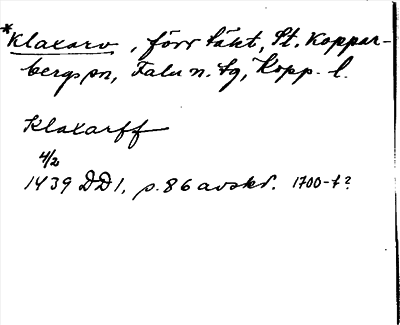 *Klaxarv, förr täkt, St. Koppar-
bergs sn, Falu n. tg, Kopp. l.
Klaxarff
4/2
1439 DD1, s. 86 avskr. 1700-t?